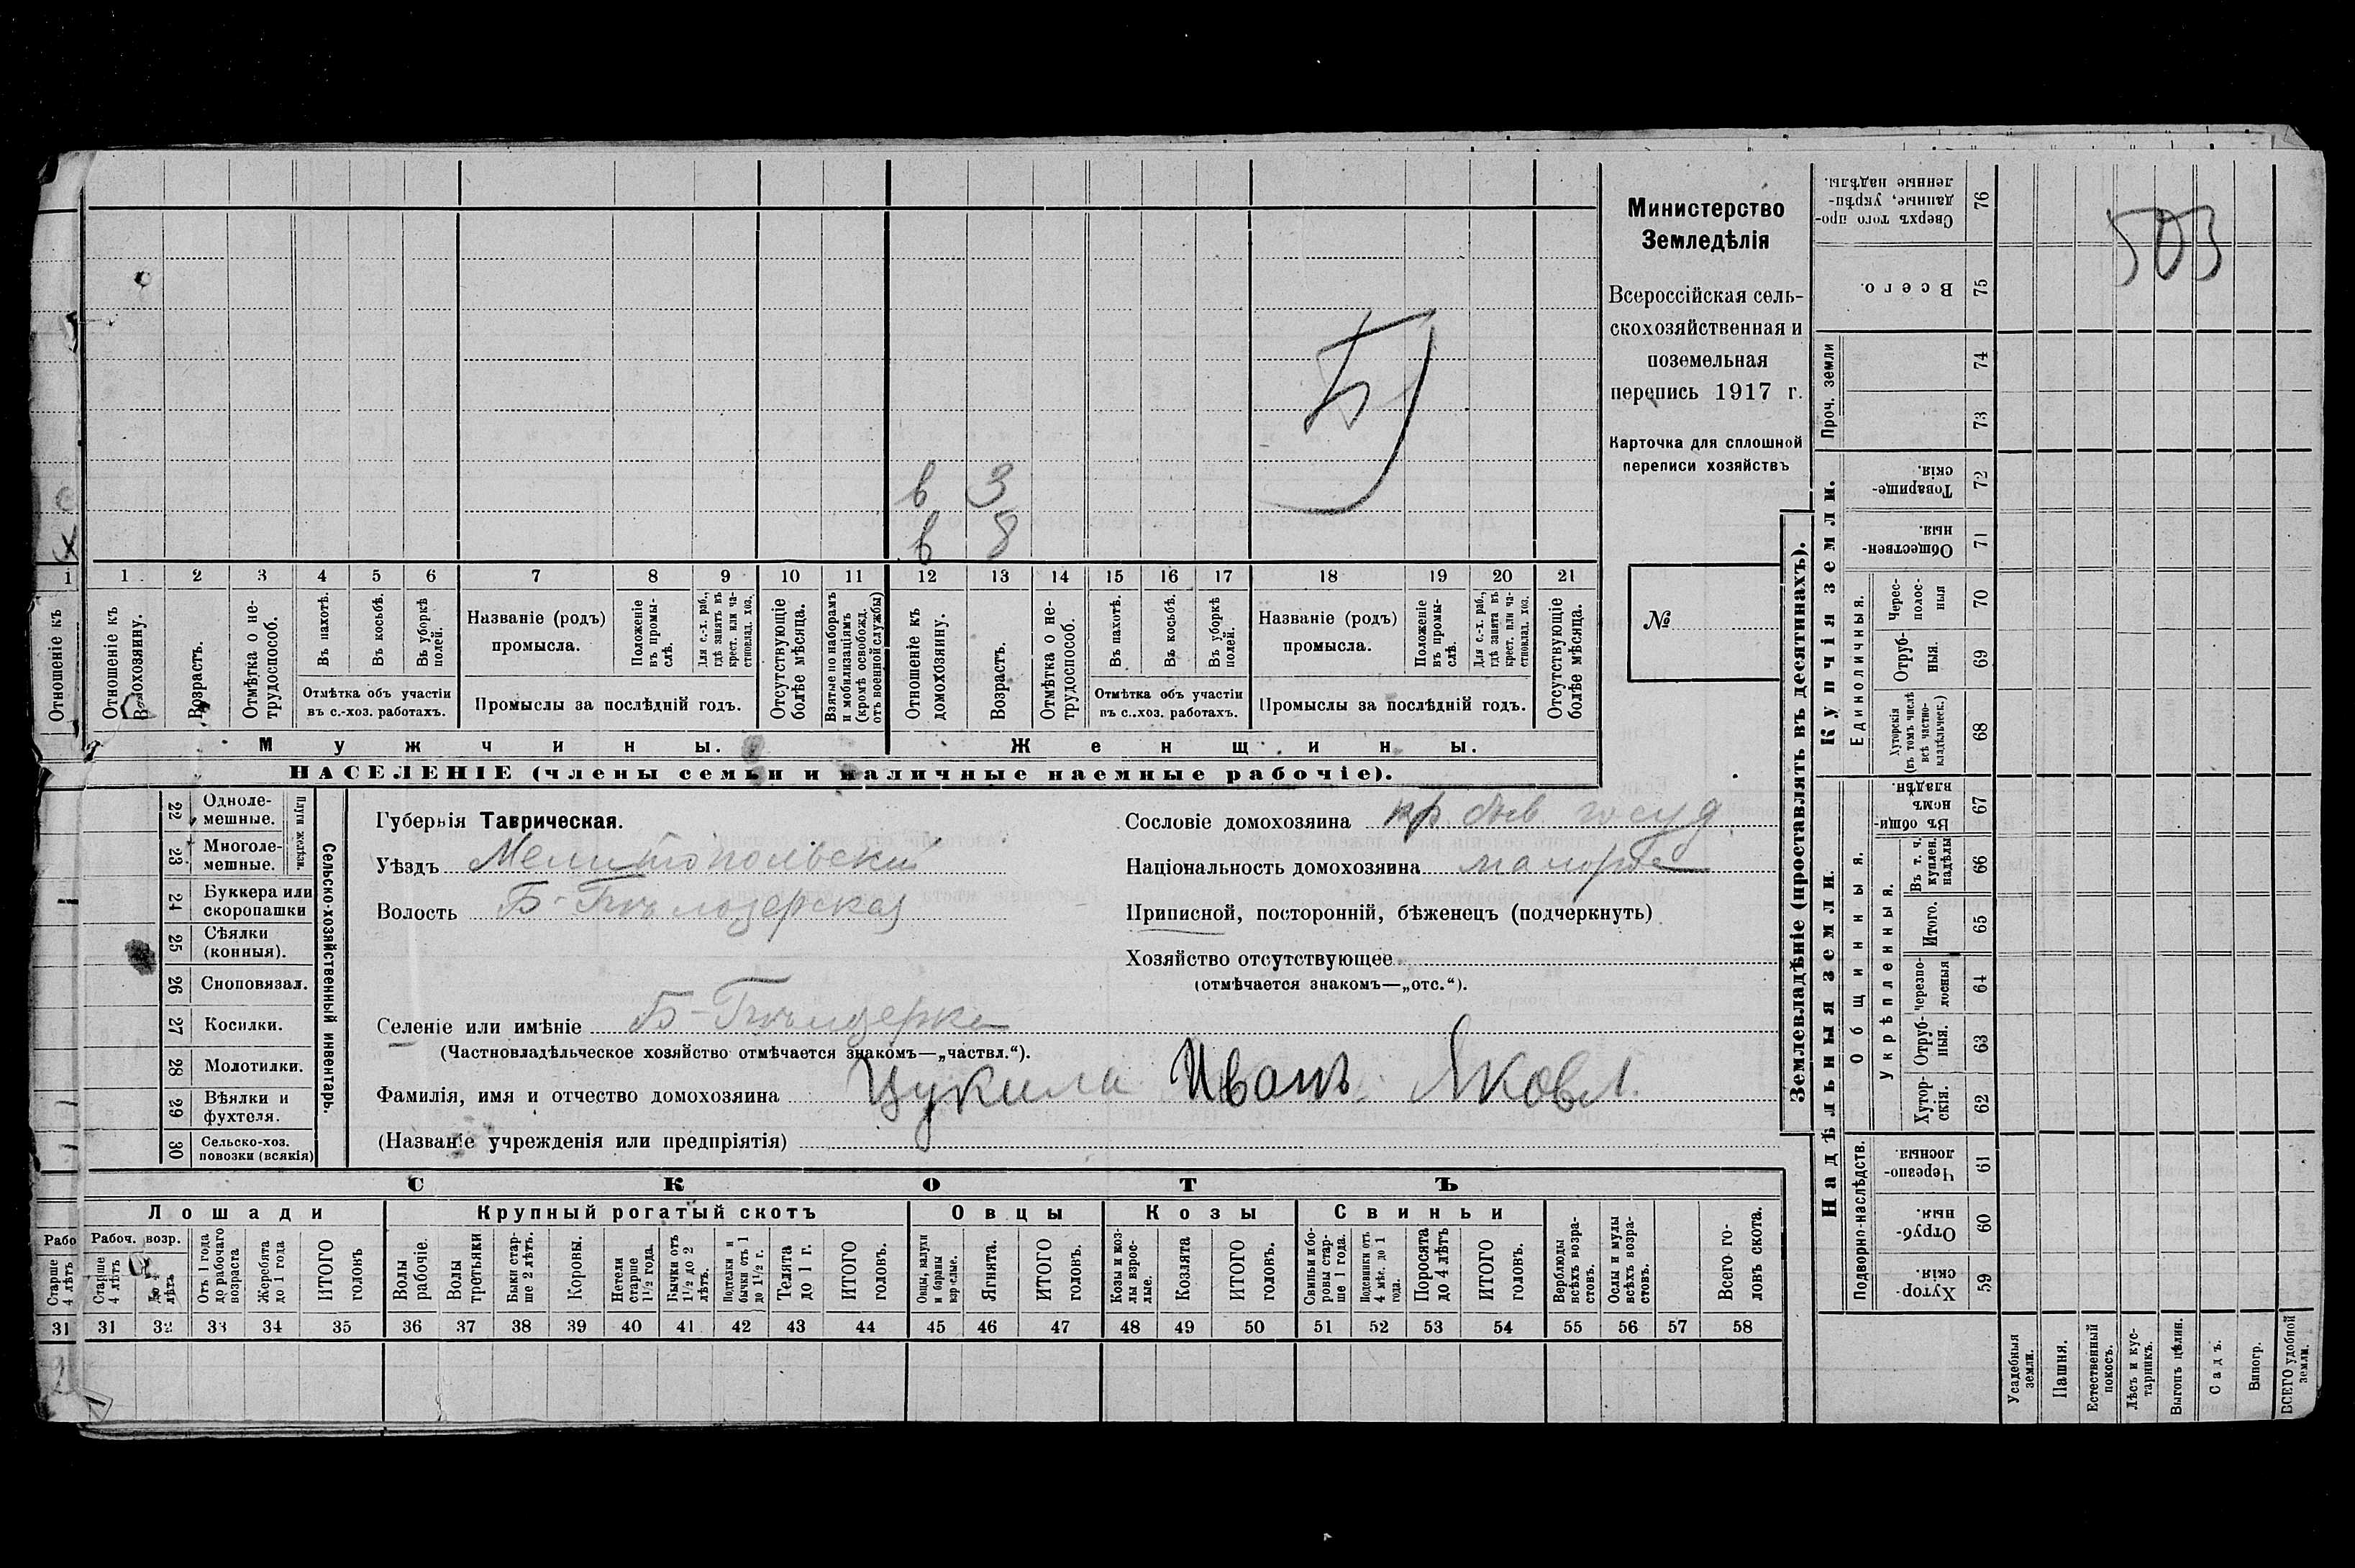 503
Министерство
Земледѣлія
Всероссійская сель-
скохозяйственная и
поземельная
перепись 1917 г.
Карточка для сплошной
переписи хозяйствъ
№
Б
в 3
в 8
1 1 2 3 4 5 6 7 8 9 10 11 12 13 14 15 16 17 18 19 20 21
Отношеніе къ
Отношеніе къ
домохозяину.
Возрастъ.
Отмѣтка о не-
трудоспособ.
Въ пахотѣ.
Въ косьбѣ.
Въ уборкѣ
полей.
Отмѣтка объ участіи
въ с.-хоз. работахъ.
Названіе (родъ)
промысла.
Положеніе
въ промы-
слѣ.
Для с.-х. раб.,
гдѣ занятъ въ
крест. или ча-
стновлад. хоз.
Промыслы за послѣдній годъ.
Отсутствующіе
болѣе мѣсяца.
Взятые по наборамъ
и мобилизаціямъ
(кромѣ освобожд.
отъ военной службы)
Отношеніе къ
домохозяину.
Возрастъ.
Отмѣтка о не-
трудоспособ.
Въ пахотѣ.
Въ косьбѣ.
Въ уборкѣ
полей.
Отмѣтка объ участіи
въ с..хоз. работахъ.
Названіе (родъ)
промысла.
Положеніе
въ промы-
слѣ.
Для с.-х. раб.,
гдѣ занята въ
крест. или ча-
стновлад. хоз.
Промыслы за послѣдній годъ.
Отсутствующіе
болѣе мѣсяца.
Мужчины.
Женщины.
НАСЕЛЕНІЕ (члены семьи и наличные наемные рабочіе).
22 Одноле-
мешные.
23 Многоле-
мешные.
Плуги желѣзн.
24 Буккера или
скоропашки
25 Сѣялки
(конныя).
26 Сноповязал.
27 Косилки.
28 Молотилки.
29 Вѣялки и
фухтеля.
30 Сельско-хоз.
повозки (всякія)
Сельско-хозяйственный инвентарь.
Губернія Таврическая.
Уѣздъ Мелитопольскій
Волость Б-Бѣлозерская
Селеніе или имѣніе Б-Бѣлозерка
(Частновладѣльческое хозяйство отмѣчается знакомъ—„частвл.“).
Фамилія, имя и отчество домохозяина Цукила Иванъ Яковл.
(Названіе учрежденія или предпріятія)
Сословіе домохозяина кр. быв. госуд.
Національность домохозяина
Приписной, посторонній, бѣженецъ (подчеркнуть)
Хозяйство отсутствующее
(отмѣчается знакомъ—„отс.“).
СКОТЪ
Лошади
Крупный рогатый скотъ
Овцы
Козы
Свиньи
Рабо
Старше
4 лѣтъ
Рабоч. возр.
Старше
4 лѣтъ
До 4
лѣтъ
Отъ 1 года
до рабочаго
возраста
Жеребята
до 1 года
ИТОГО
головъ
Волы
рабочіе.
Волы
третьяки
Быки стар-
ше 2 лѣтъ.
Коровы.
Нетели
старше
1½ года.
Бычки отъ
1½ до 2
лѣтъ.
Подтелки и
бычки отъ 1
до 1½ г.
Телята
до 1 г.
ИТОГО
головъ.
Овцы, валухи
и бараны
взрослые.
Ягнята.
ИТОГО
головъ.
Козы и коз-
лы взрос-
лые.
Козлята
ИТОГО
головъ.
Свиньи и бо-
ровы стар-
ше 1 года.
Подсвинки отъ
4 мѣс. до 1
года.
Поросята
до 4 лѣтъ
ИТОГО
головъ.
Верблюды
всѣхъ возра-
стовъ.
Ослы и мулы
всѣхъ возра-
стовъ.
Всего го-
ловъ скота.
31 31 32 33 34 35 36 37 38 39 40 41 42 43 44 45 46 47 48 49 50 51 52 53 54 55 56 57 58
Землевладѣніе (проставлять въ десятинахъ).
Купчія земли.
Надѣльныя земли.
76 Сверхъ того про-
данные, укрѣп-
ленные надѣлы.
75 Всего.
Проч. земли
74
73
72 Товарище-
скія.
71 Обществен-
ныя
Единоличныя.
70 Черес-
полос-
ныя
69 Отруб-
ныя.
68 Хуторскія
(въ томъ числѣ
всѣ частно-
владѣльческ.)
Общинныя.
67 Въ общин-
номъ
владѣн.
Укрѣпленныя.
66 Въ т. ч.
куплен.
надѣлы
65 Итого.
64 Черезпо-
лосныя
63 Отруб-
ныя.
62 Хутор-
скія.
Подворно-наслѣдств.
61 Черезпо-
лосныя
60 Отруб-
ныя.
59 Хутор-
скія.
Усадебныя
земли.
Пашня.
Естественный
покосъ.
Лѣсъ и кус-
тарникъ.
Выгонъ цѣлин.
Садъ.
Виногр.
ВСЕГО удобной
земли.